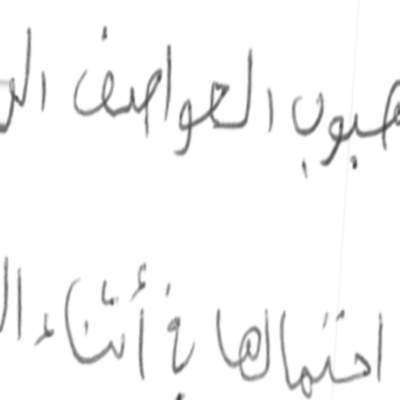 هبوب العواصف ال
احتمالها في أثناء ال